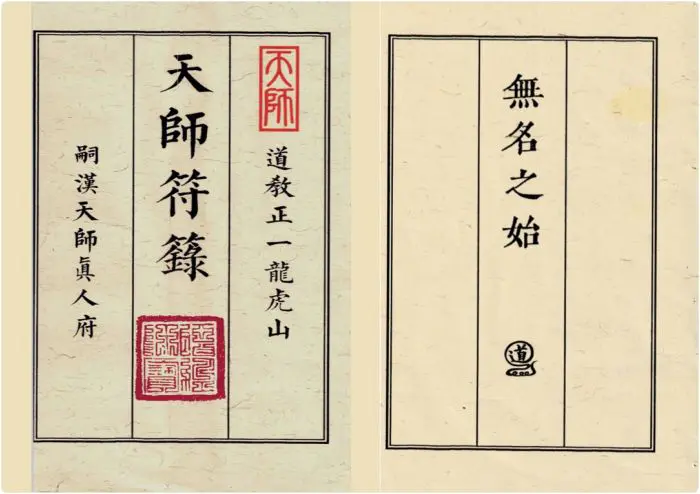 無名之始
道
天師
道敎正一龍虎山
天師符籙
嗣漢天師眞人府